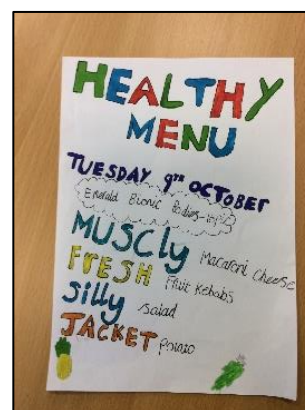 HEALTHY
MENU
TUESDAY 9TH OCTOBER
Emerald Bionic Bodies-topic
MUSCLY Macaroni Cheese
FRESH Fruit Kebabs
Silly salad
JACKET potato